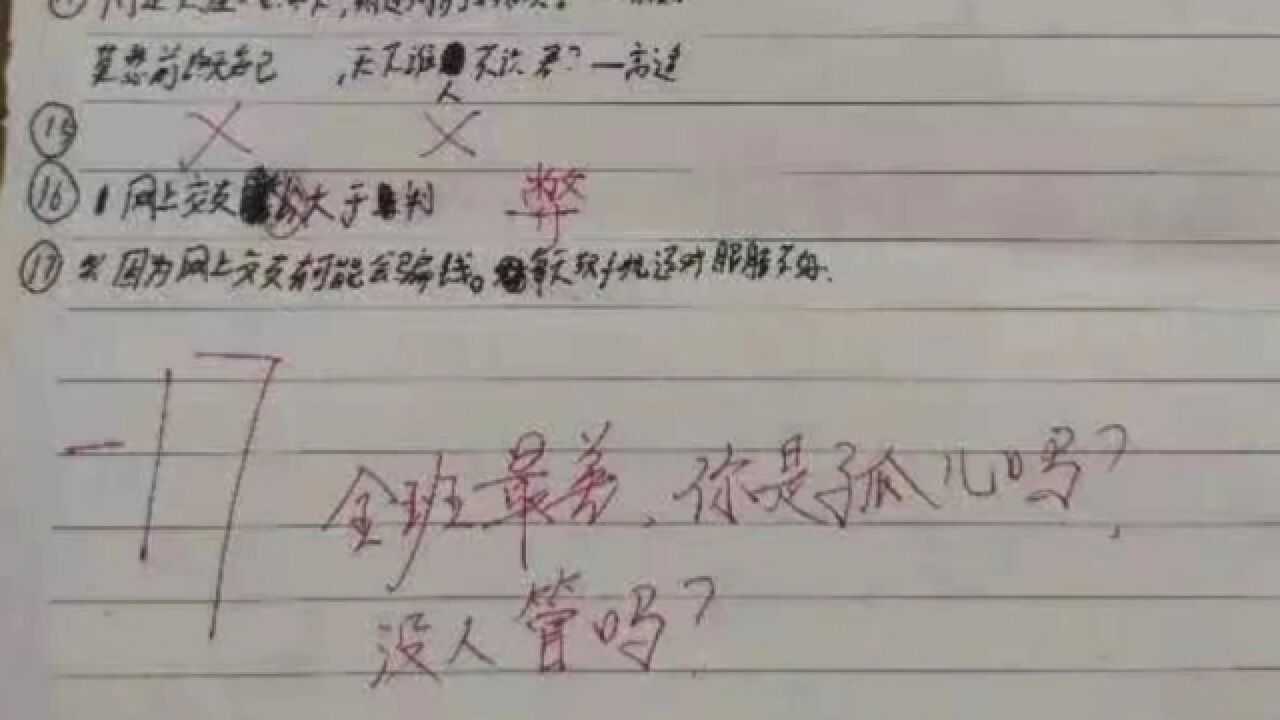 莫愁前路无知己，天下谁人不识君？—高适
⑮
⑯ 网上交友 大于利 弊
⑰ 因为网上交友有可能会骗钱。每天玩手机还对眼睛不好.
-17
全班最差、你是孤儿吗？
没人管吗？